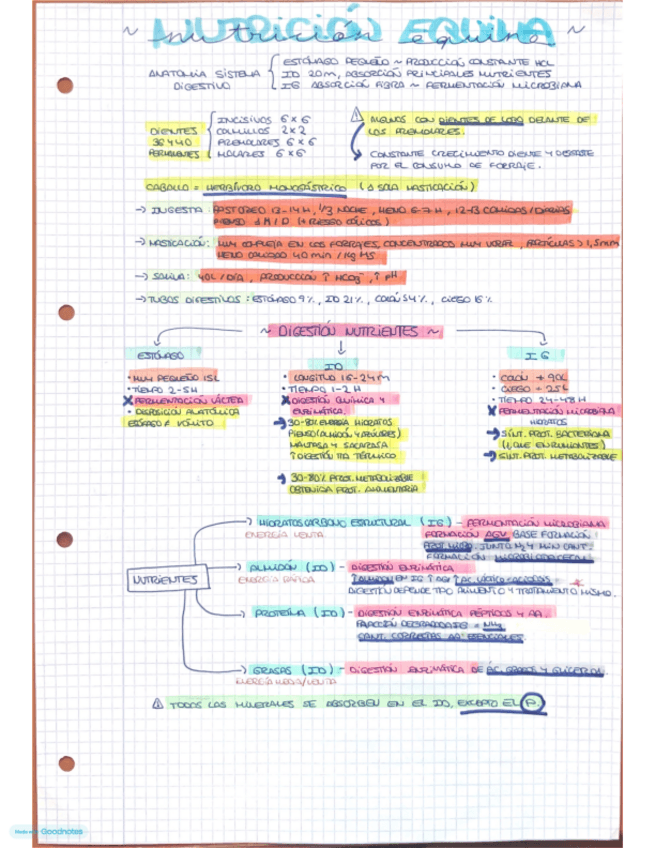 ~ NUTRICIÓN EQUINA ~
nutrición equina
ANATOMÍA SISTEMA DIGESTIVO
ESTÓMAGO PEQUEÑO ~ PRODUCCIÓN CONSTANTE HCL
ID 20m, ABSORCIÓN PRINCIPALES NUTRIENTES
IG ABSORCIÓN FIBRA ~ FERMENTACIÓN MICROBIANA
DIENTES
36 Y 40
PERMANENTES
INCISIVOS 6 x 6
COLMILLOS 2 x 2
PREMOLARES 6 x 6
MOLARES 6 x 6
⚠ ALGUNOS CON DIENTES DE LOBO DELANTE DE
LOS PREMOLARES.
CONSTANTE CRECIMIENTO DIENTE Y DESGASTE
POR EL CONSUMO DE FORRAJE.
CABALLO = HERBÍVORO MONOGÁSTRICO (Δ SOLA MASTICACIÓN)
→ INGESTA: PASTOREO 13-14 H, 1/3 NOCHE, HENO 6-7 H, 12-13 COMIDAS/DIARIAS
PIENSO 2H/D (+ RIESGO CÓLICOS)
→ MASTICACIÓN: MUY COMPLETA EN LOS FORRAJES, CONCENTRADOS MUY VORAZ, PARTÍCULAS > 1,5mm
HENO CALIDAD 40 min / Kg MS
→ SALIVA: 40L / DÍA, PRODUCCIÓN ↑ HCO3⁻, ↑ pH
→ TUBOS DIGESTIVOS: ESTÓMAGO 9%, ID 21%, COLON 54%, CIEGO 16%
~ DIGESTIÓN NUTRIENTES ~
ESTÓMAGO
• MUY PEQUEÑO 15L
• TIEMPO 2-5H
X FERMENTACIÓN LÁCTEA
• DISPOSICIÓN ANATÓMICA
ESÓFAGO ≠ VÓMITO
ID
• LONGITUD 16-24m
• TIEMPO 1-2 H
X DIGESTIÓN QUÍMICA Y
ENZIMÁTICA.
→ 30-80% ENERGÍA HIDRATOS
PIENSO (ALMIDÓN Y AZÚCARES)
MALTASA Y SACARASA
↑ DIGESTIÓN TTO TÉRMICO
→ 30-80% PROT. METABOLIZABLE
OBTENIDA PROT. ALIMENTARIA
IG
• COLON + 90L
• CIEGO + 25L
• TIEMPO 24-48 H
X FERMENTACIÓN MICROBIANA
HIDRATOS
→ SÍNT. PROT. BACTERIANA
(¿, QUE EN RUMIANTES)
→ SÍNT. PROT. METABOLIZABLE
NUTRIENTES
HIDRATOS CARBONO ESTRUCTURAL (IG) - FERMENTACIÓN MICROBIANA
ENERGÍA LENTA.
FORMACIÓN AGV BASE FORMACIÓN
PROT. MICRO. JUNTO N2 Y MIN CANT.
FORMACIÓN
ALMIDÓN (ID) - DIGESTIÓN ENZIMÁTICA
ENERGÍA RÁPIDA
↑ ALMIDÓN EN IG ↑ AGV ↑ AC. LÁCTICO *
DIGESTIÓN DEPENDE TIPO ALIMENTO Y TRATAMIENTO MISMO.
PROTEÍNA (ID) - DIGESTIÓN ENZIMÁTICA PÉPTIDOS Y AA.
FRACCIÓN DEGRADADA IG = NH3
CANT. CORRECTAS AA ESENCIALES
GRASAS (ID) - DIGESTIÓN ENZIMÁTICA DE ÁC. GRASOS Y GLICEROL.
ENERGÍA MEDIA/LENTA
⚠ TODOS LOS MINERALES SE ABSORBEN EN EL ID, EXCEPTO EL P.
Made with Goodnotes